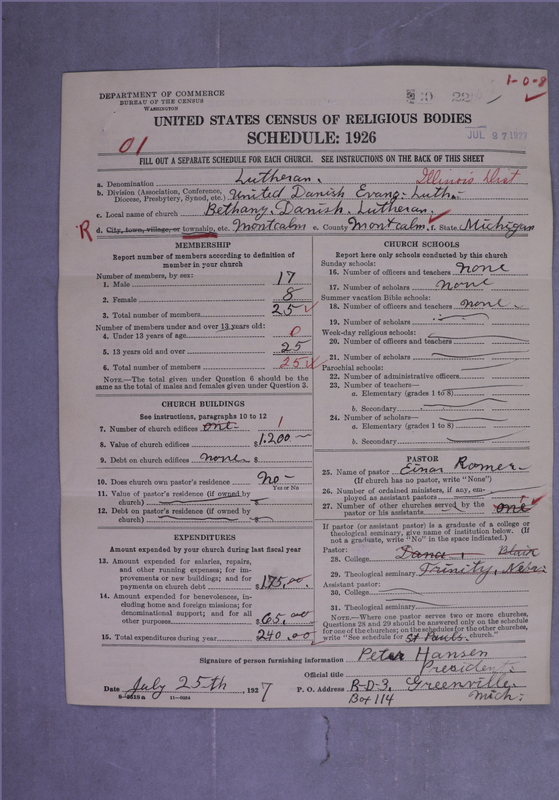 1-0-8
DEPARTMENT OF COMMERCE
BUREAU OF THE CENSUS
WASHINGTON
UNITED STATES CENSUS OF RELIGIOUS BODIES
SCHEDULE: 1926
JUL 27 1927
01
FILL OUT A SEPARATE SCHEDULE FOR EACH CHURCH. SEE INSTRUCTIONS ON THE BACK OF THIS SHEET
a. Denomination Lutheran. Illinois Dist
b. Division (Association, Conference, Diocese, Presbytery, Synod, etc.) United Danish Evang. Luth.
c. Local name of church Bethany. Danish. Lutheran.
R d. City, town, village, or township, etc. Montcalm e. County Montcalm f. State Michigan
MEMBERSHIP
Report number of members according to definition of
member in your church
Number of members, by sex:
1. Male 17
2. Female 8
3. Total number of members 25
Number of members under and over 13 years old:
4. Under 13 years of age 0
5. 13 years old and over 25
6. Total number of members 25
NOTE.—The total given under Question 6 should be the
same as the total of males and females given under Question 3.
CHURCH BUILDINGS
See instructions, paragraphs 10 to 12
7. Number of church edifices one 1
8. Value of church edifices $1.200
9. Debt on church edifices none $
10. Does church own pastor's residence? No
Yes or No
11. Value of pastor's residence (if owned by
church) $
12. Debt on pastor's residence (if owned by
church) $
EXPENDITURES
Amount expended by your church during last fiscal year
13. Amount expended for salaries, repairs,
and other running expenses; for im-
provements or new buildings; and for
payments on church debt $175.00
14. Amount expended for benevolences, in-
cluding home and foreign missions; for
denominational support; and for all
other purposes $65.00
15. Total expenditures during year 240.00
CHURCH SCHOOLS
Report here only schools conducted by this church
Sunday schools:
16. Number of officers and teachers none
17. Number of scholars none
Summer vacation Bible schools:
18. Number of officers and teachers none.
19. Number of scholars
Week-day religious schools:
20. Number of officers and teachers
21. Number of scholars
Parochial schools:
22. Number of administrative officers
23. Number of teachers—
a. Elementary (grades 1 to 8)
b. Secondary
24. Number of scholars—
a. Elementary (grades 1 to 8)
b. Secondary
PASTOR
25. Name of pastor Einar Romer
(If church has no pastor, write "None")
26. Number of ordained ministers, if any, em-
ployed as assistant pastors
27. Number of other churches served by the
pastor or his assistants one 1
If pastor (or assistant pastor) is a graduate of a college or
theological seminary, give name of institution below. (If
not a graduate, write "No" in the space indicated.)
Pastor:
28. College Dana, Blair
29. Theological seminary Trinity, Nebr
Assistant pastor:
30. College
31. Theological seminary
NOTE.—Where one pastor serves two or more churches,
Questions 28 and 29 should be answered only on the schedule
for one of the churches; on the schedules for the other churches,
write "See schedule for St Pauls church."
Signature of person furnishing information Peter Hansen
Official title President
Date July 25th, 1927 P. O. Address R-D-3. Greenville
8-5616 a Box 114 Mich.